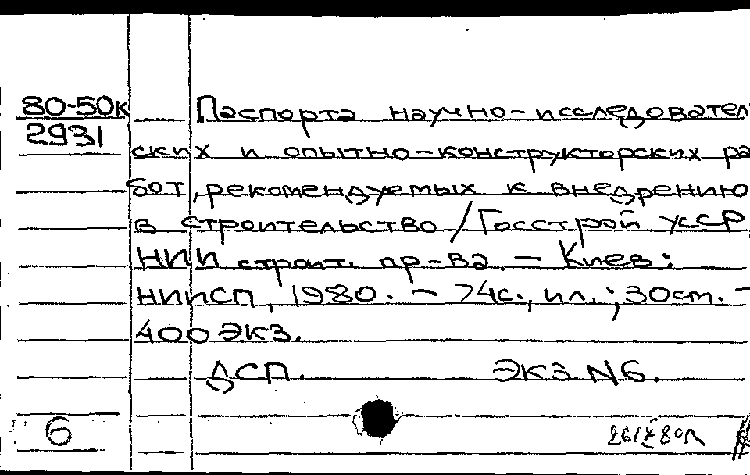 80-50к Паспорта научно-исследовател
2931
ских и опытно-конструкторских ра
бот, рекомендуемых к внедрению
в строительство / Госстрой УССР,
НИИ строит. пр-ва. — Киев:
НИИСП, 1980. — 74с., ил.; 30см. —
400 экз.
ДСП. Экз. N6.
6